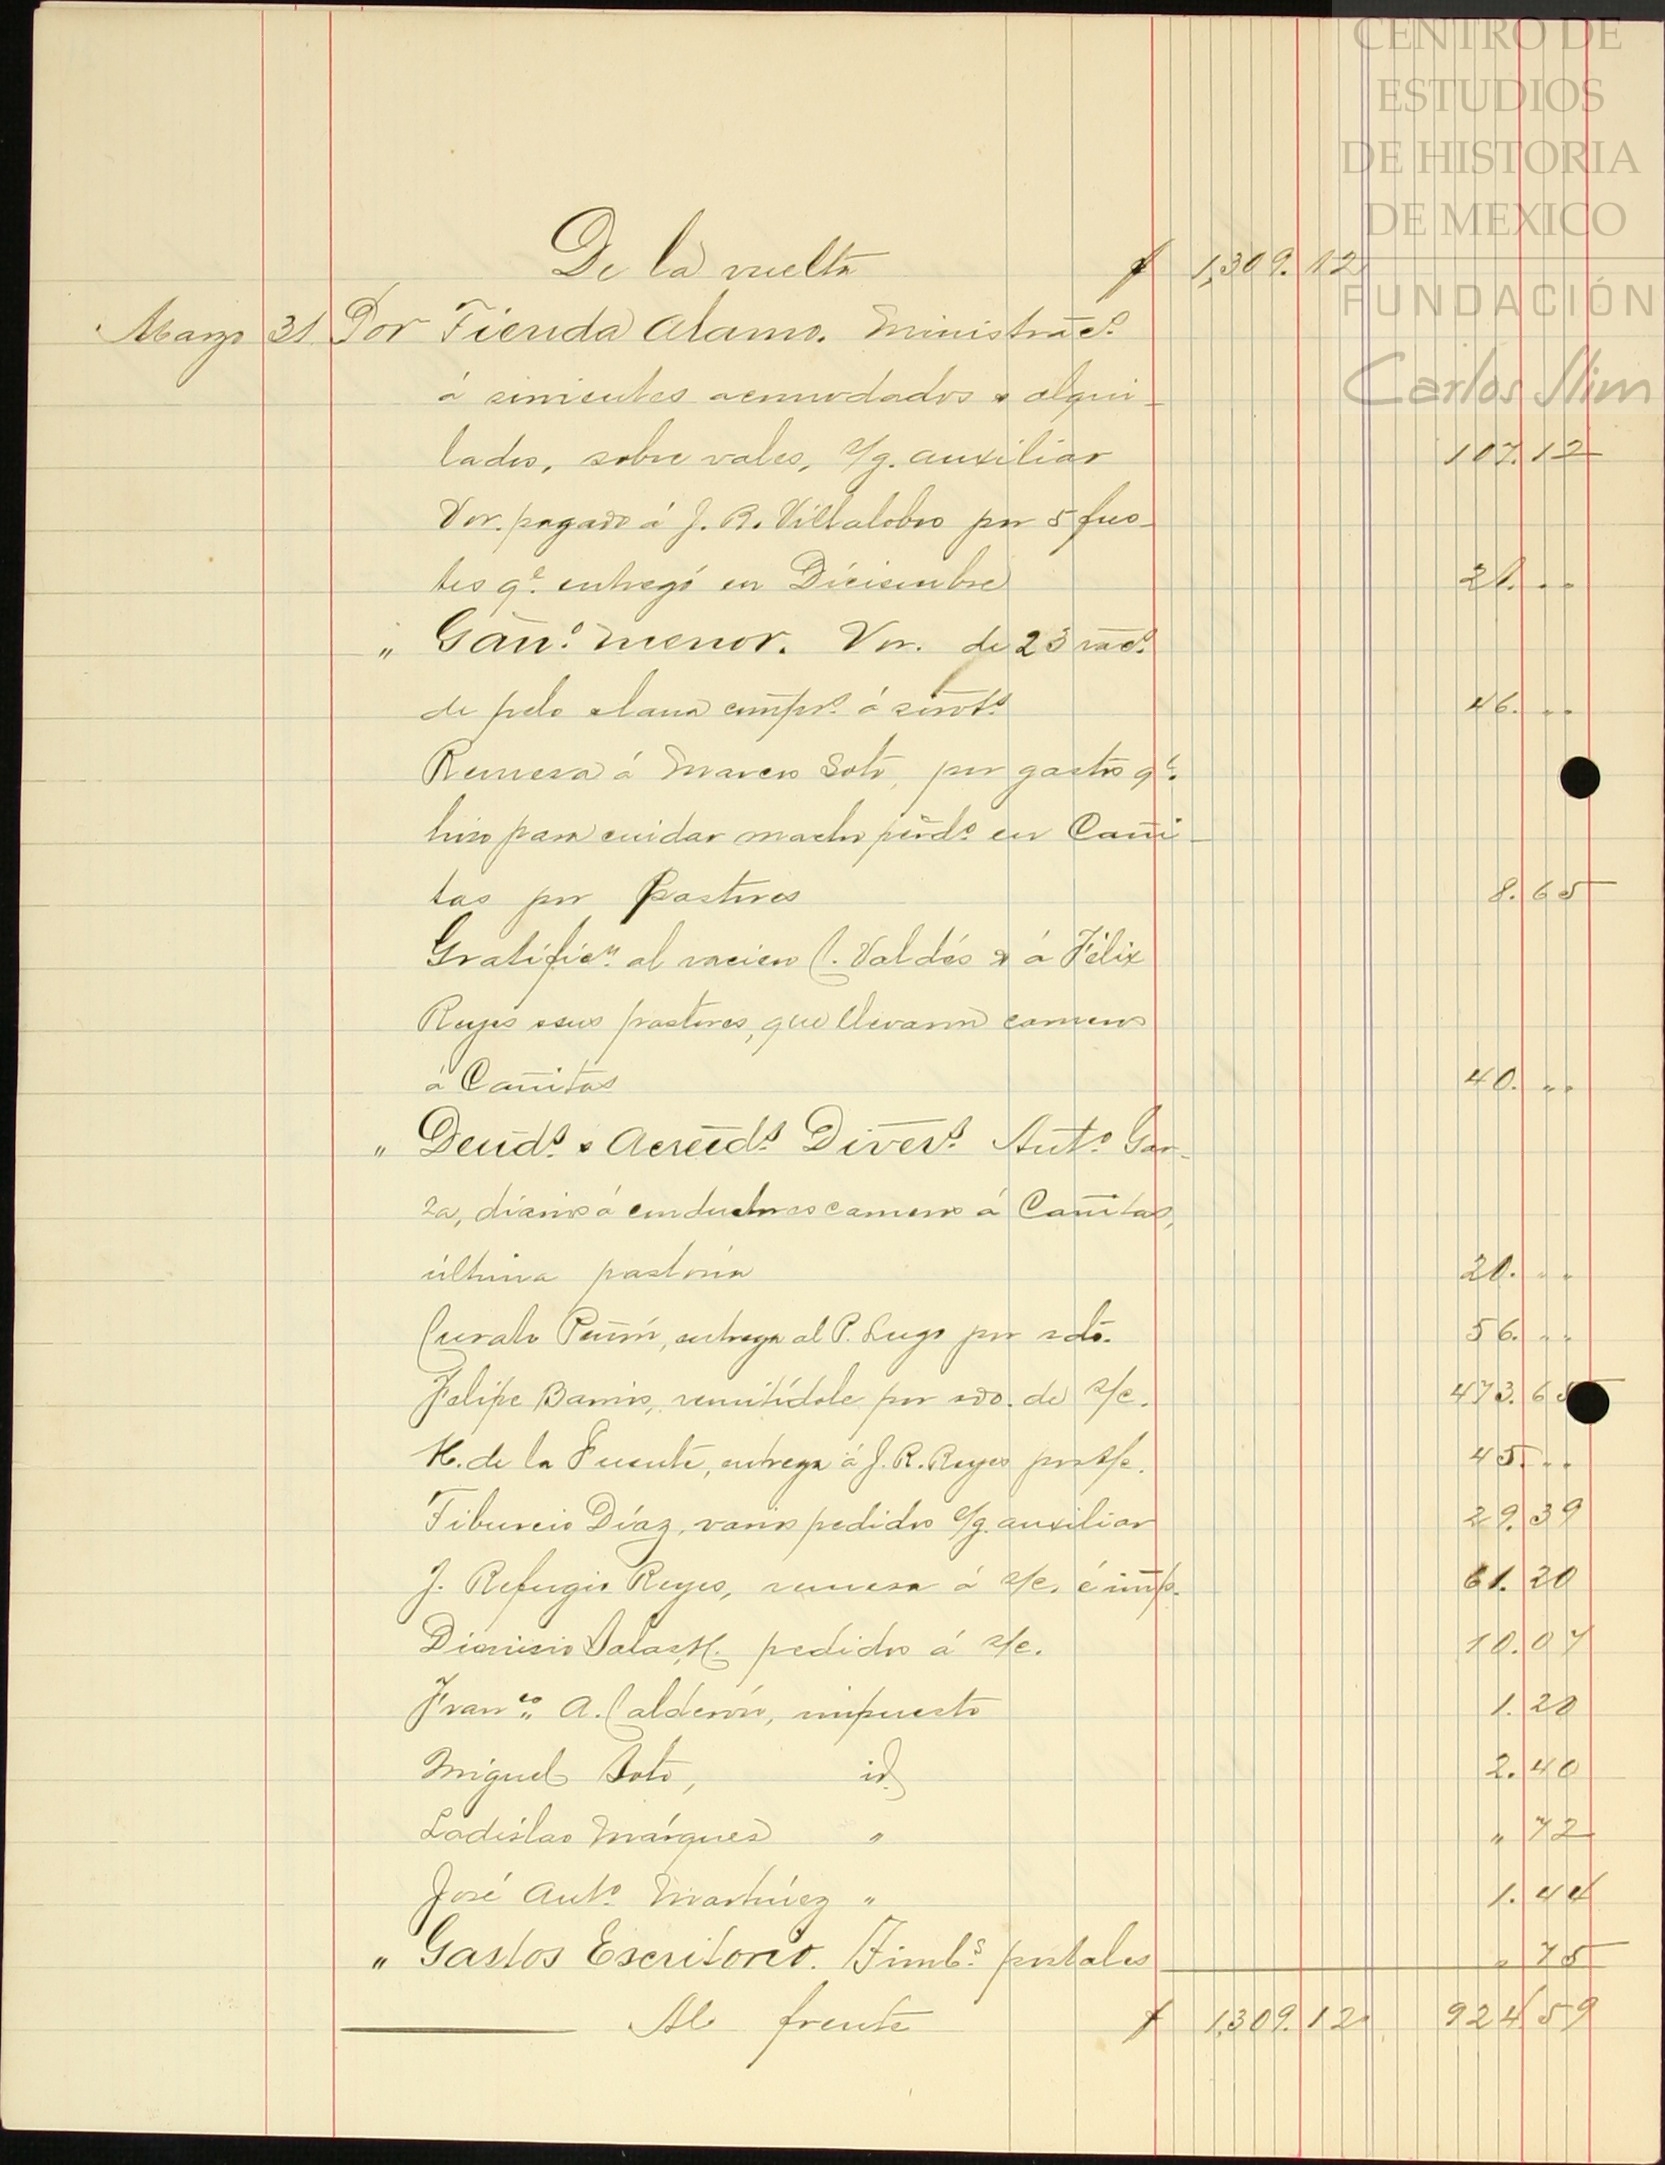 CENTRO DE
ESTUDIOS
DE HISTORIA
DE MEXICO
FUNDACIÓN
Carlos Slim
De la vuelta $ 1,309.12
Marzo 31 Por Tienda Alamo. Ministrac.s
á sirvientes acomodados & alqui-
lados, sobre vales, s/g. auxiliar 107.12
Vor. pagado á J. R. Villalobos por 5 fus-
tes q.e entregó en Diciembre 21. ..
" Gan.o menor. Vor. de 23 rac.s
de pelo & lana compr.s á sirvt.s 46. ..
Remesa á Marcos Soto, por gastos q.e
hizo para cuidar macho perd.o en Cañi-
tas por Pastores 8.65
Gratific.n al vaciero C. Valdés & á Félix
Reyes & sus pastores, que llevaron carneros
á Cañitas 40. ..
" Deud.s & Acreed.s Divers.s Ant.o Gar-
za, diarios á conductores carneros á Cañitas,
última pastoría 20. ..
Curato Peñón, entrega al P. Lugo por sdo. 56. ..
Felipe Barrios, remitídole por sdo. de s/c. 473.65
H. de la Fuente, entrega á J. R. Reyes por s/c. 45. ..
Tiburcio Díaz, varios pedidos s/g. auxiliar 29.39
J. Refugio Reyes, remesa á s/c. é imp. 61.20
Dionisio Salas H. pedidos á s/c. 10.07
Fran.co A. Calderón, impuesto 1.20
Miguel Soto, id. 2.40
Ladislao Márquez " " 72
José Ant.o Martínez " 1.44
" Gastos Escritorio. Timb.s postales " 75
Al frente $ 1,309.12 924.59